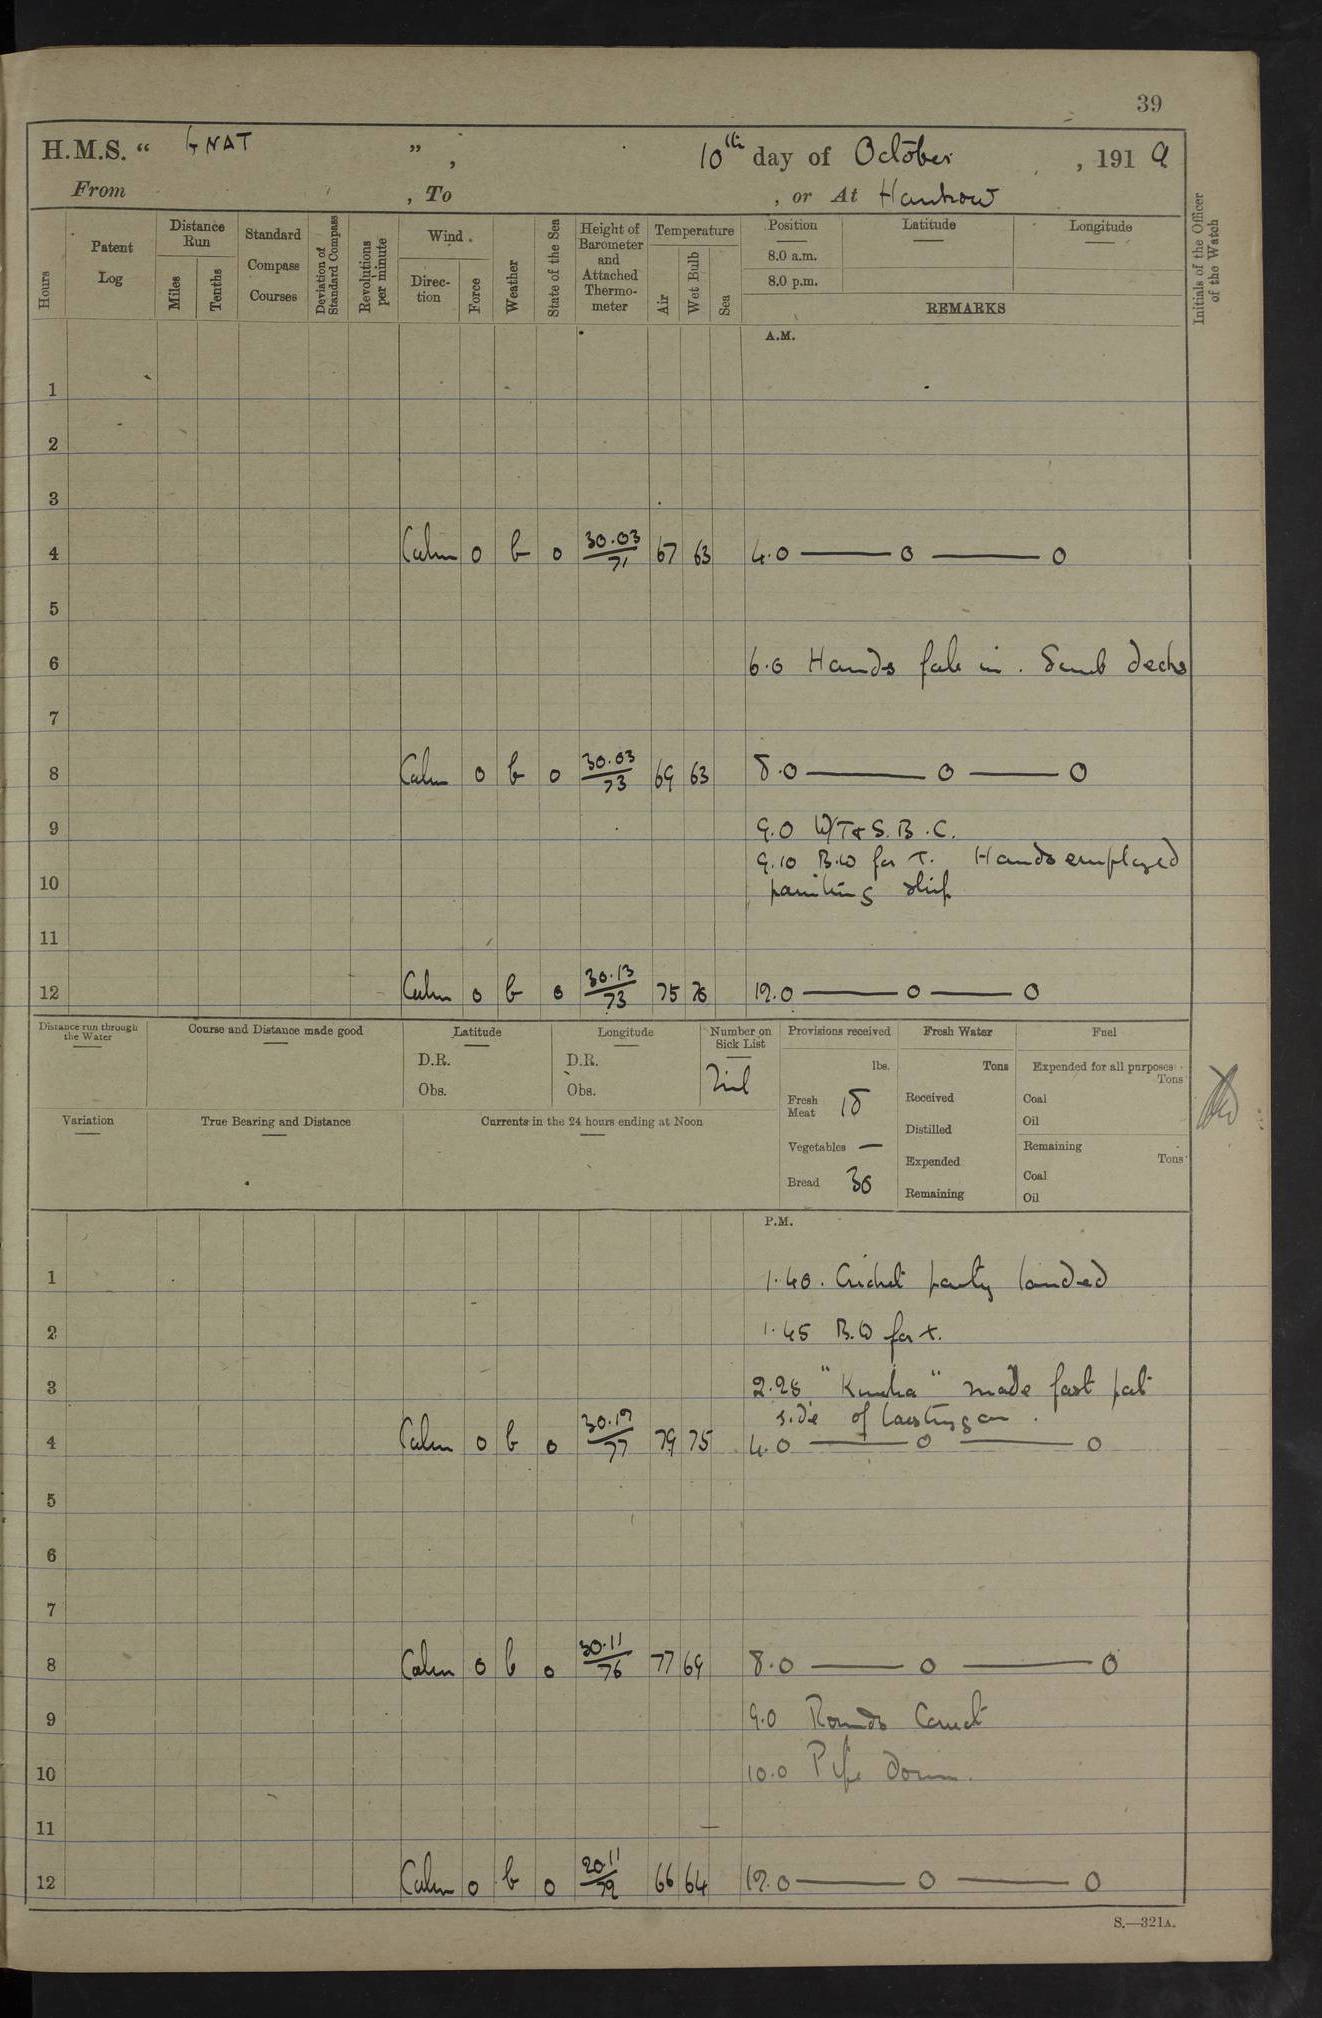 39
H.M.S. " GNAT ", 10th day of October, 1919
From , To , or At Hankow
Hours
Patent Log
Distance Run
Miles
Tenths
Standard Compass Courses
Deviation of Standard Compass
Revolutions per minute
Wind
Direction
Force
Weather
State of the Sea
Height of Barometer and Attached Thermometer
Temperature
Air
Wet Bulb
Sea
Position
8.0 a.m.
8.0 p.m.
Latitude
Longitude
REMARKS
Initials of the Officer of the Watch
A.M.
1
2
3
4 Calm 0 b 0 30.03/71 67 63 4.0 — 0 — 0
5
6 6.0 Hands fall in. Scrub decks
7
8 Calm 0 b 0 30.03/73 69 63 8.0 — 0 — 0
9 9.0 W/T & S.B.C.
9.10 B.W for T. Hands employed
10 painting ship
11
12 Calm 0 b 0 30.13/73 75 12.0 — 0 — 0
Distance run through the Water
Course and Distance made good
Latitude
D.R.
Obs.
Longitude
D.R.
Obs.
Number on Sick List
Nil
Provisions received
lbs.
Fresh Meat 18
Vegetables —
Bread 30
Fresh Water
Tons
Received
Distilled
Expended
Remaining
Fuel
Expended for all purposes
Tons
Coal
Oil
Remaining
Tons
Coal
Oil
Variation
True Bearing and Distance
Currents in the 24 hours ending at Noon
P.M.
1 1.40. Cricket party landed
2 1.45 B.W for t.
3 2.28 " " made fast port
side of
4 Calm 0 b 0 30.19/77 79 75 4.0 — 0 — 0
5
6
7
8 Calm 0 b 0 30.11/76 77 69 8.0 — 0 — 0
9 9.0 Rounds Correct
10 10.0 Pipe down.
11
12 Calm 0 b 0 66 64 12.0 — 0 — 0
S.—321A.